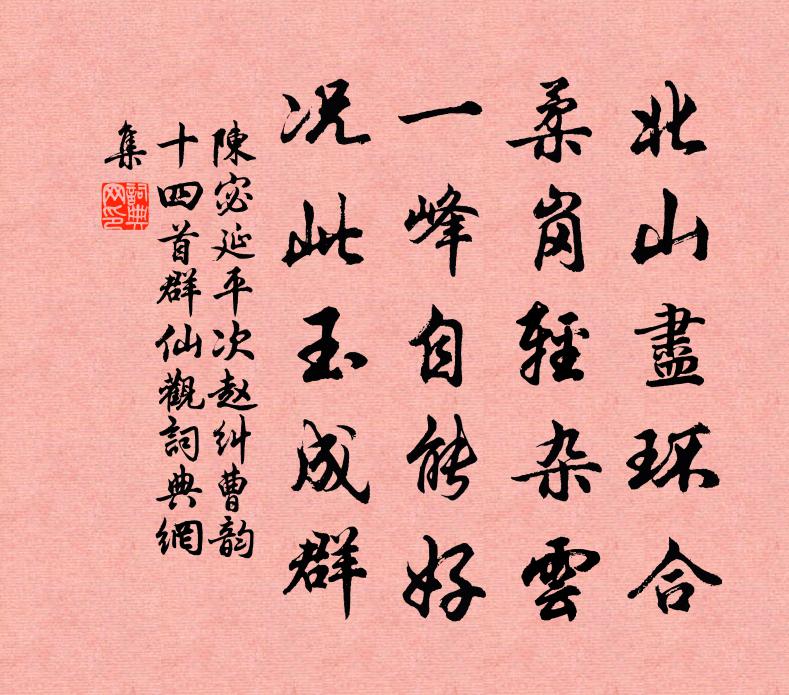 北山盡环合
柔岗輕杂雲
一峰自能好
况此玉成群
陳宓延平次赵纠曹韵
十四首群仙觀詞典網
集
詞典网印